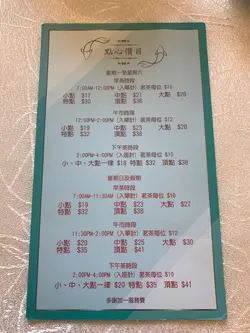 點心價目
星期一至星期六
早茶時段
7:00AM-12:00PM (入單計) 茗茶每位 $10
小點 $17 中點 $21 大點 $26
特點 $30 頂點 $36
午市時段
12:00PM-2:00PM (入單計) 茗茶每位 $12
小點 $19 中點 $23 大點 $28
特點 $32 頂點 $38
下午茶時段
2:00PM-4:00PM (入座計) 茗茶每位 $10
小、中、大點一律 $18 特點 $32 頂點 $38
星期日及假期
早茶時段
7:00AM-11:30AM (入單計) 茗茶每位
小點 $19 中點 $23 大點 $27
特點 $32 頂點 $38
午市時段
11:30PM-2:00PM (入單計) 茗茶每位
小點 $20 中點 $25 大點 $30
特點 $35 頂點 $41
下午茶時段
2:00PM-4:00PM (入座計) 茗茶每位
小、中、大點一律 $20 特點 $35 頂點 $41
多謝加一服務費